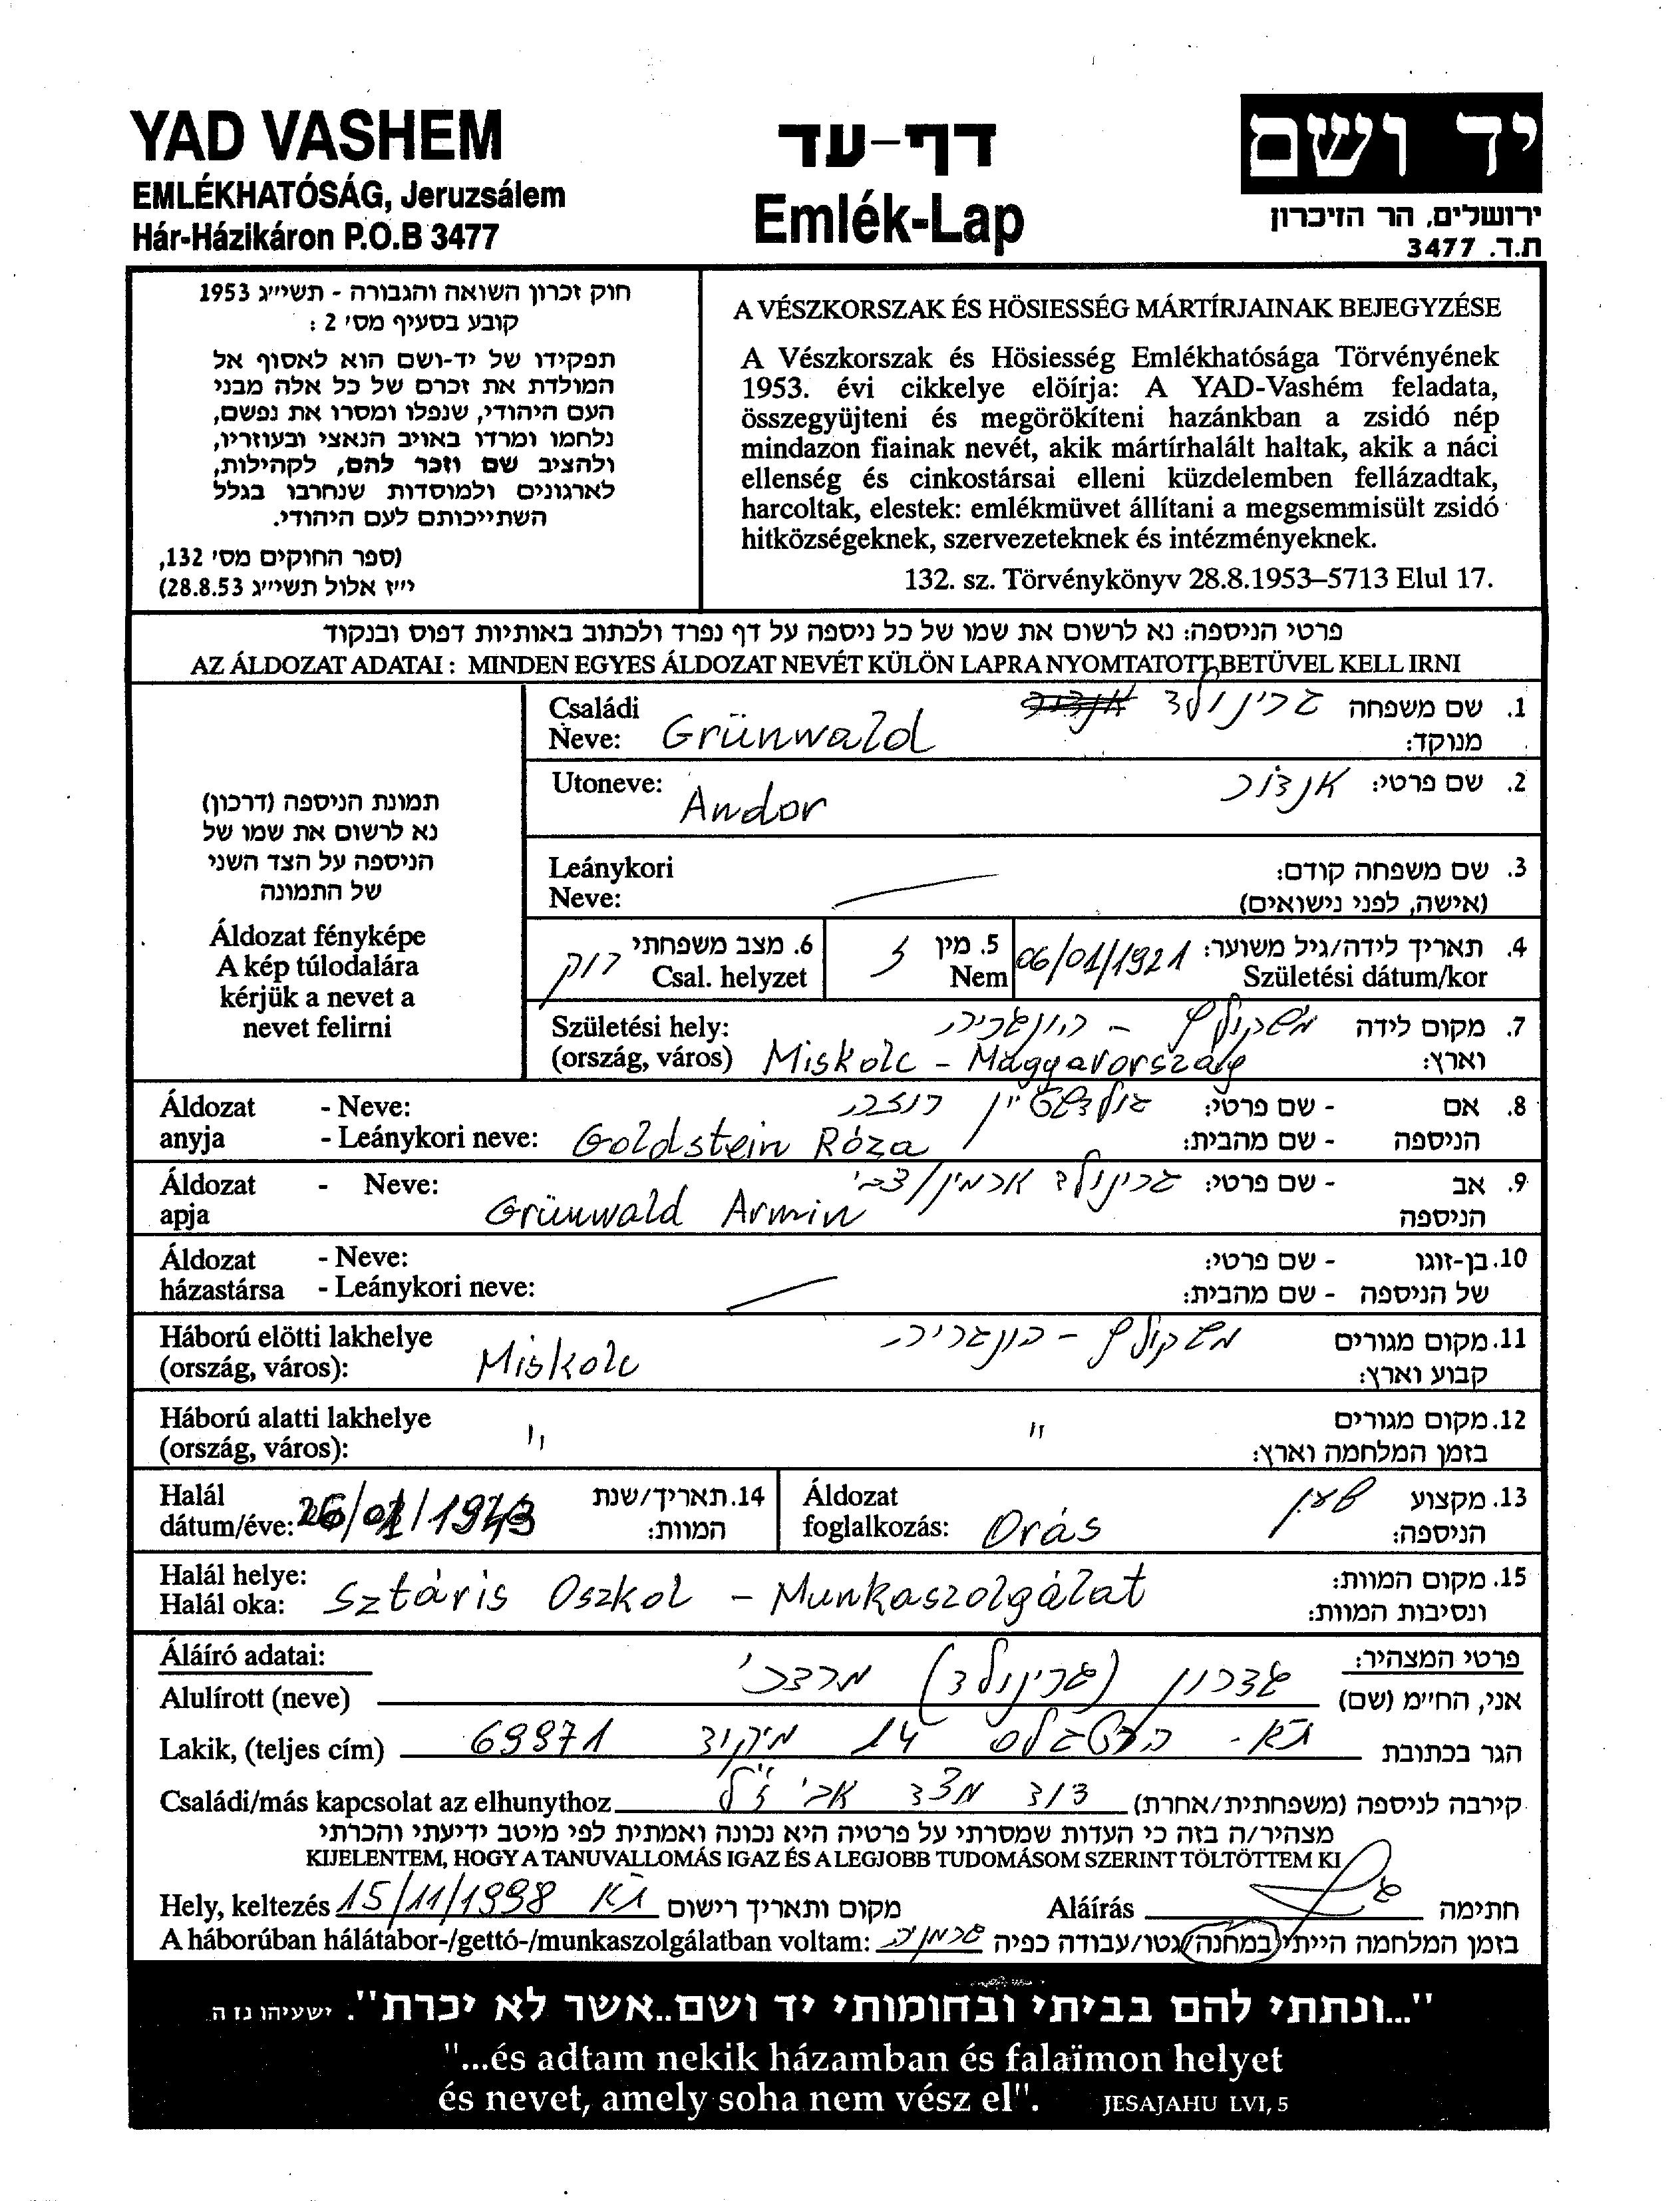 YAD VASHEM
EMLÉKHATÓSÁG, Jeruzsálem
Hár-Házikáron P.O.B 3477
דף-עד
Emlék-Lap
יד ושם
ירושלים, הר הזיכרון
ת.ד. 3477
חוק זכרון השואה והגבורה - תשי״ג 1953
קובע בסעיף מס׳ 2 :
תפקידו של יד-ושם הוא לאסוף אל
המולדת את זכרם של כל אלה מבני
העם היהודי, שנפלו ומסרו את נפשם,
נלחמו ומרדו באויב הנאצי ובעוזריו,
ולהציב שם וזכר להם, לקהילות,
לארגונים ולמוסדות שנחרבו בגלל
השתייכותם לעם היהודי.
(ספר החוקים מס׳ 132,
י״ז אלול תשי״ג 28.8.53)
A VÉSZKORSZAK ÉS HÖSIESSÉG MÁRTÍRJAINAK BEJEGYZÉSE
A Vészkorszak és Hösiesség Emlékhatósága Törvényének
1953. évi cikkelye elöírja: A YAD-Vashém feladata,
összegyüjteni és megörökíteni hazánkban a zsidó nép
mindazon fiainak nevét, akik mártírhalált haltak, akik a náci
ellenség és cinkostársai elleni küzdelemben fellázadtak,
harcoltak, elestek: emlékmüvet állítani a megsemmisült zsidó
hitközségeknek, szervezeteknek és intézményeknek.
132. sz. Törvénykönyv 28.8.1953–5713 Elul 17.
פרטי הניספה: נא לרשום את שמו של כל ניספה על דף נפרד ולכתוב באותיות דפוס ובנקוד
AZ ÁLDOZAT ADATAI : MINDEN EGYES ÁLDOZAT NEVÉT KÜLÖN LAPRA NYOMTATOTT BETÜVEL KELL IRNI
תמונת הניספה (דרכון)
נא לרשום את שמו של
הניספה על הצד השני
של התמונה
Áldozat fényképe
A kép túlodalára
kérjük a nevet a
nevet felirni
Családi
Neve: Grünwald
1. שם משפחה
מנוקד: גרינולד
Utoneve: Andor
2. שם פרטי: אנדור
Leánykori
Neve:
3. שם משפחה קודם:
(אישה, לפני נישואים)
6. מצב משפחתי רווק
Csal. helyzet
5. מין ז
Nem
4. תאריך לידה/גיל משוער: 06/01/1921
Születési dátum/kor
Születési hely:
(ország, város) Miskolc - Magyarország
7. מקום לידה
וארץ: מישקולץ - הונגריה
Áldozat - Neve:
anyja - Leánykori neve: Goldstein Róza
8. אם - שם פרטי: גולדשטיין רוזה
הניספה - שם מהבית:
Áldozat - Neve:
apja Grünwald Armin
9. אב - שם פרטי: גרינולד ארמין/צבי
הניספה
Áldozat - Neve:
házastársa - Leánykori neve:
10. בן-זוגו - שם פרטי:
של הניספה - שם מהבית:
Háború elötti lakhelye
(ország, város): Miskolc
11. מקום מגורים
קבוע וארץ: מישקולץ - הונגריה
Háború alatti lakhelye
(ország, város): "
12. מקום מגורים
בזמן המלחמה וארץ: "
Halál
dátum/éve:
14. תאריך/שנת
המוות:
Áldozat
foglalkozás: Orás
13. מקצוע
הניספה: שען
Halál helye:
Halál oka: Sztáris Oszkol - Munkaszolgálat
15. מקום המוות:
ונסיבות המוות:
Áláíró adatai:
פרטי המצהיר:
Alulírott (neve) אני, החי״מ (שם) (גרינולד) מרדכי
Lakik, (teljes cím) הגר בכתובת ת״א - 14 מיקוד 69971
Családi/más kapcsolat az elhunythoz קירבה לניספה (משפחתית/אחרת) דוד מצד אבי ז״ל
מצהיר/ה בזה כי העדות שמסרתי על פרטיה היא נכונה ואמתית לפי מיטב ידיעתי והכרתי
KIJELENTEM, HOGY A TANUVALLOMÁS IGAZ ÉS A LEGJOBB TUDOMÁSOM SZERINT TÖLTÖTTEM KI
Hely, keltezés 15/11/1998 ת״א מקום ותאריך רישום
Aláírás חתימה
A háborúban hálátábor-/gettó-/munkaszolgálatban voltam: בזמן המלחמה הייתי במחנה/גטו/עבודה כפיה גרמניה
"...ונתתי להם בביתי ובחומותי יד ושם..אשר לא יכרת". ישעיהו נז ה
"...és adtam nekik házamban és falaïmon helyet
és nevet, amely soha nem vész el". JESAJAHU LVI, 5